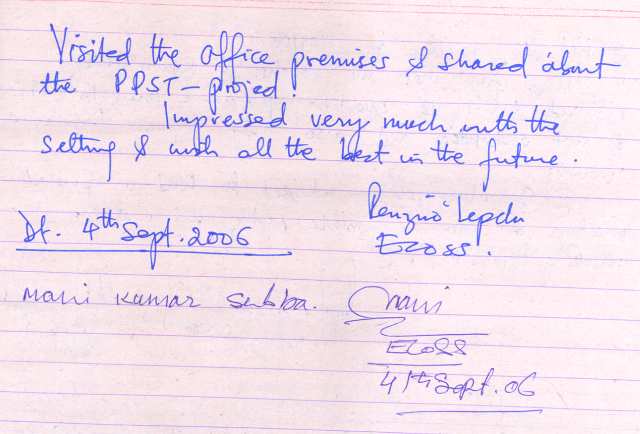 Visited the office premises & shared about
the PPST-project!
Impressed very much with the
setting & wish all the best in the future.
Lepcha
Dt. 4th Sept. 2006
ECOSS.
Mani Kumar Subba. Mani
ECOSS
4th Sept. 06